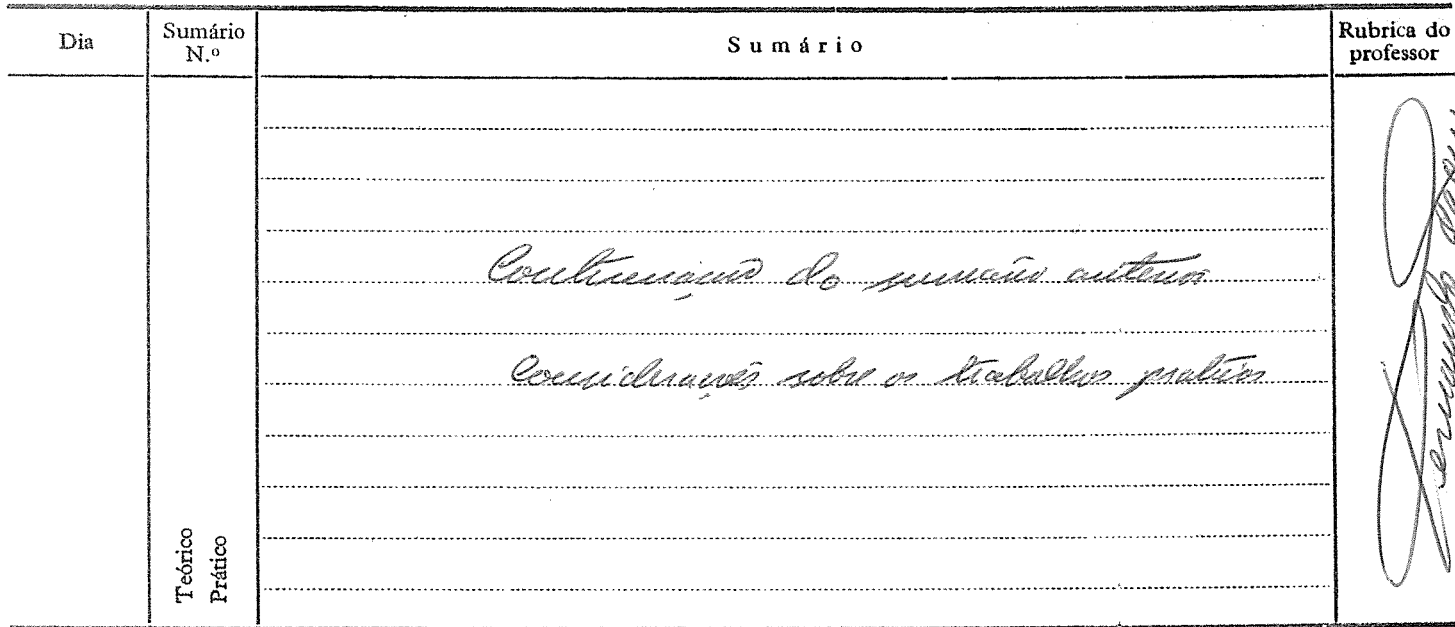 Dia
Sumário N.º
Sumário
Rubrica do professor
Continuação do sumário anterior
Considerações sobre os trabalhos práticos
Teórico
Prático
Fernando